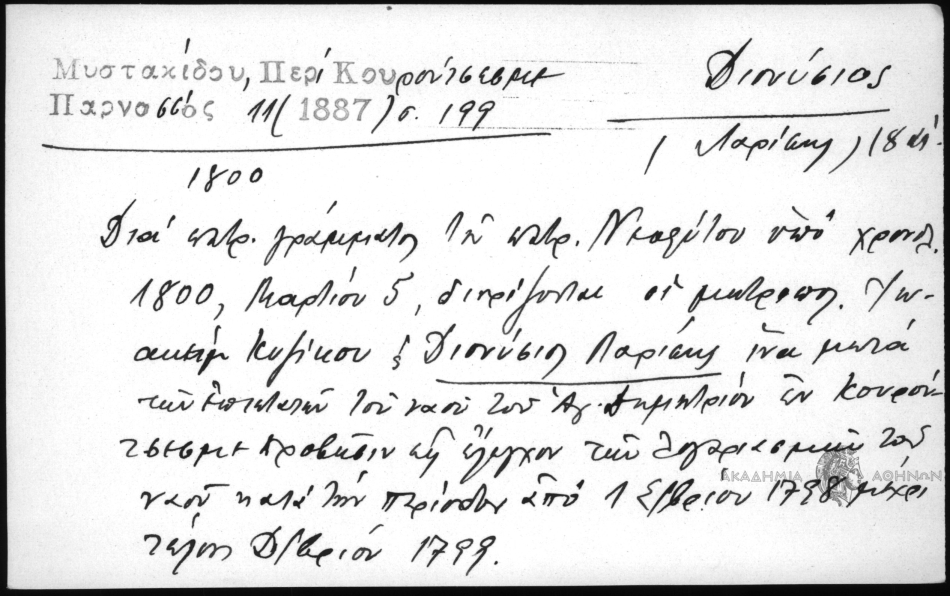 Μυστακίδου, Περί Κουρούτσεσμε
Παρνασσός 11 (1887) σ. 199
Διονύσιος
(Λαρίσης) 18 αἰ.
1800
Διά πατρ. γράμματος τοῦ πατρ. Νεοφύτου ὑπό χρονολ.
1800, Μαρτίου 5, διορίζονται οἱ μητροπολ. Ἰωα-
ακείμ Κυζίκου ἐ Διονύσιος Λαρίσης ἵνα μετά
τῶν ἐπιτρόπων τοῦ ναοῦ τοῦ Ἁγ. Δημητρίου ἐν Κουρού-
τσεσμε προβῶσιν εἰς ἔλεγχον τῶν λογαριασμῶν τοῦ
ναοῦ κατά τήν περίοδον ἀπό 1 Σ/βρίου 1798 μέχρι
τέλους Δ/βρίου 1799.
ΑΚΑΔΗΜΙΑ ΑΘΗΝΩΝ